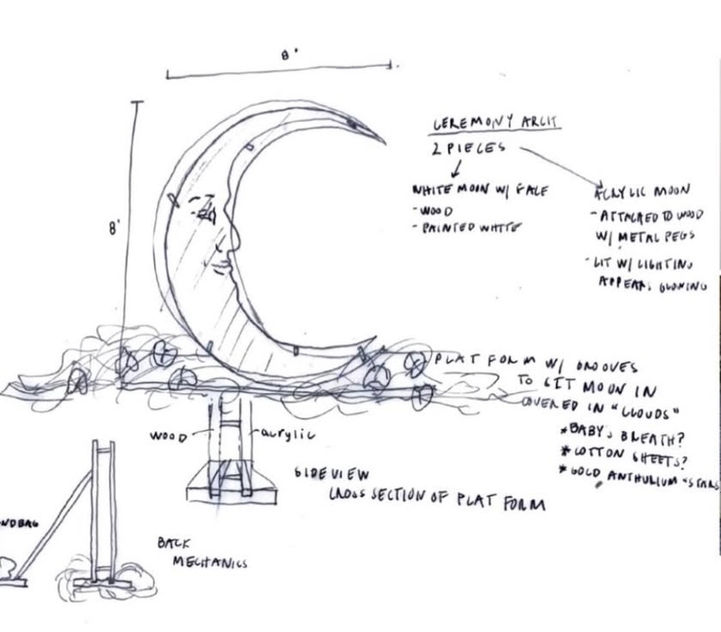 8'
8'
CEREMONY ARCH
2 PIECES
WHITE MOON W/ FACE
- WOOD
- PAINTED WHITE
ACRYLIC MOON
- ATTACHED TO WOOD
W/ METAL PEGS
- LIT W/ LIGHTING
APPEARS GLOWING
PLATFORM W/ GROOVES
TO SIT MOON IN
COVERED IN "CLOUDS"
* BABY'S BREATH?
* COTTON SHEETS?
* GOLD ANTHURIUM "STARS
wood
acrylic
SIDEVIEW
CROSS SECTION OF PLATFORM
NDBAG
BACK
MECHANICS